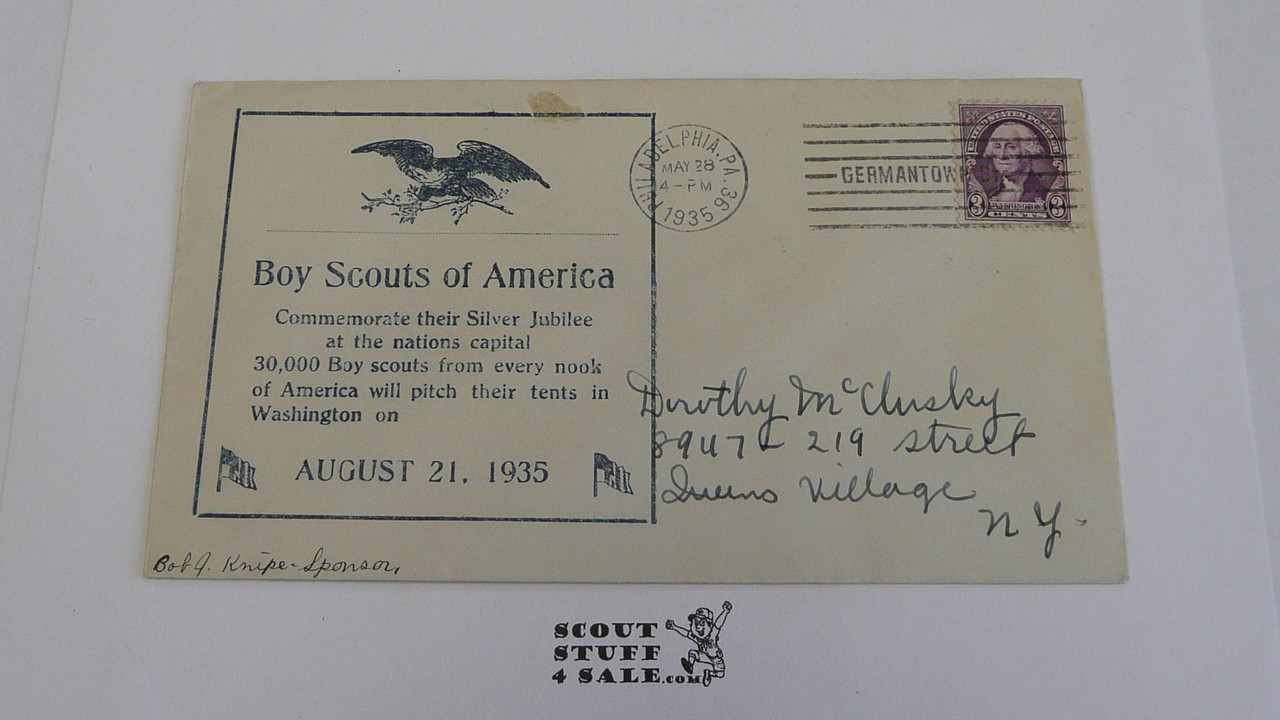 Boy Scouts of America
Commemorate their Silver Jubilee
at the nations capital
30,000 Boy scouts from every nook
of America will pitch their tents in
Washington on
AUGUST 21, 1935
Bob J. Knipe-Sponsor,
PHILADELPHIA, PA. 36
MAY 28
4-PM
1935
GERMANTOWN
UNITED STATES POSTAGE
3 WASHINGTON 3
CENTS
Dorothy McClusky
8947-219 street
Queens Village
N Y-
SCOUT
STUFF
4 SALE.COM